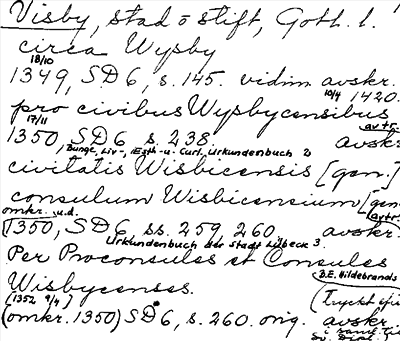 Visby, stad o stift, Gotl. l.
circa Wysby
18/10
1349, SD 6, s. 145. vidim. avskr.
10/4 1420.
pro civibus Wysbycensibus
17/11
avtr.
1350, SD 6 s. 238. avskr.
Bunge, Liv-, Esth- u. Curl. Urkundenbuch 2
civitatis Wisbicensis [gen.]
consulum Wisbicensium [gen.
omkr. u.d.
avtr.
1350, SD 6 ss. 259, 260. avskr.
Urkundenbuch der Stadt Lübeck 3.
Per Proconsules et Consules
B.E. Hildebrands
Wisbycenses.
(1352 9/4) (Tryckt
(omkr. 1350) SD 6, s. 260. orig. avskr.
i saml. till
Sv. Dipl.)